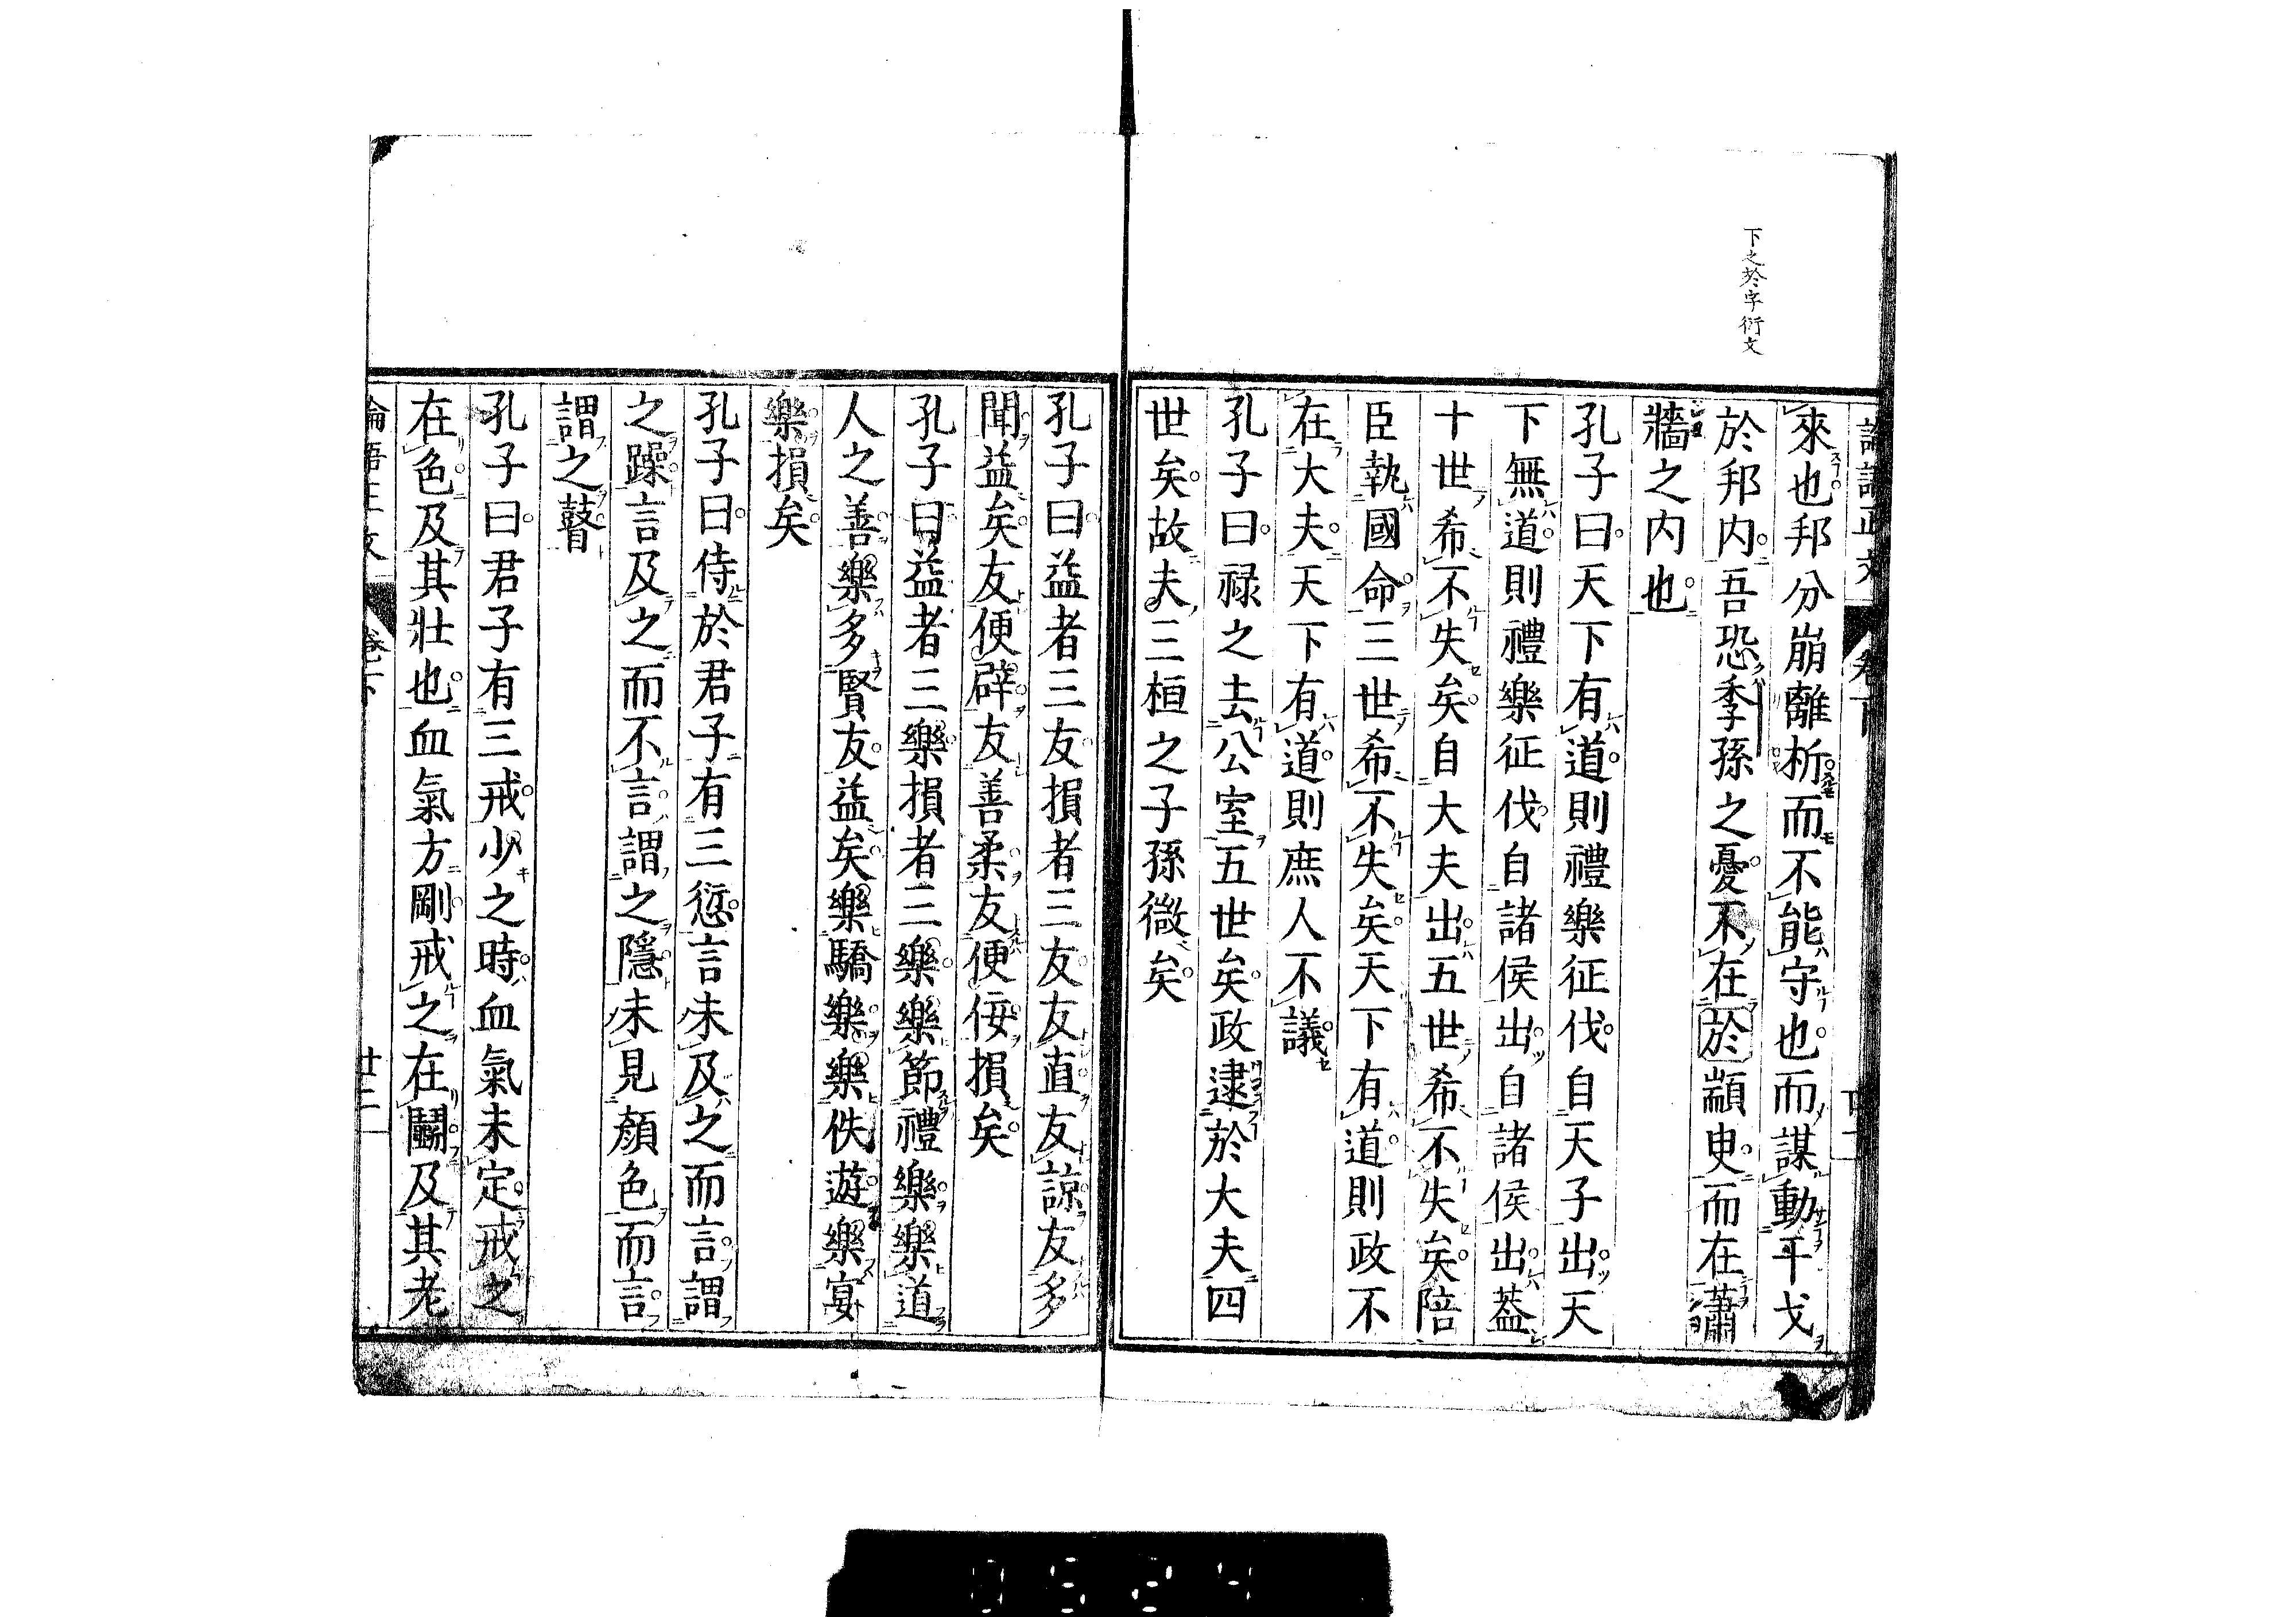 下之於字衍文
來也邦分崩離析而不能守也而謀動干戈
於邦内吾恐季孫之憂不在於顓臾而在蕭
牆之内也
孔子曰天下有道則禮樂征伐自天子出天
下無道則禮樂征伐自諸侯出自諸侯出蓋
十世希不失矣自大夫出五世希不失矣陪
臣執國命三世希不失矣天下有道則政不
在大夫天下有道則庶人不議
孔子曰禄之去公室五世矣政逮於大夫四
世矣故夫三桓之子孫微矣
孔子曰益者三友損者三友友直友諒友多
聞益矣友便辟友善柔友便佞損矣
孔子曰益者三樂損者三樂樂節禮樂樂道
人之善樂多賢友益矣樂驕樂樂佚遊樂宴
樂損矣
孔子曰侍於君子有三愆言未及之而言謂
之躁言及之而不言謂之隱未見顔色而言
謂之瞽
孔子曰君子有三戒少之時血氣未定戒之
在色及其壯也血氣方剛戒之在鬬及其老
論語正文 卷下 廿二